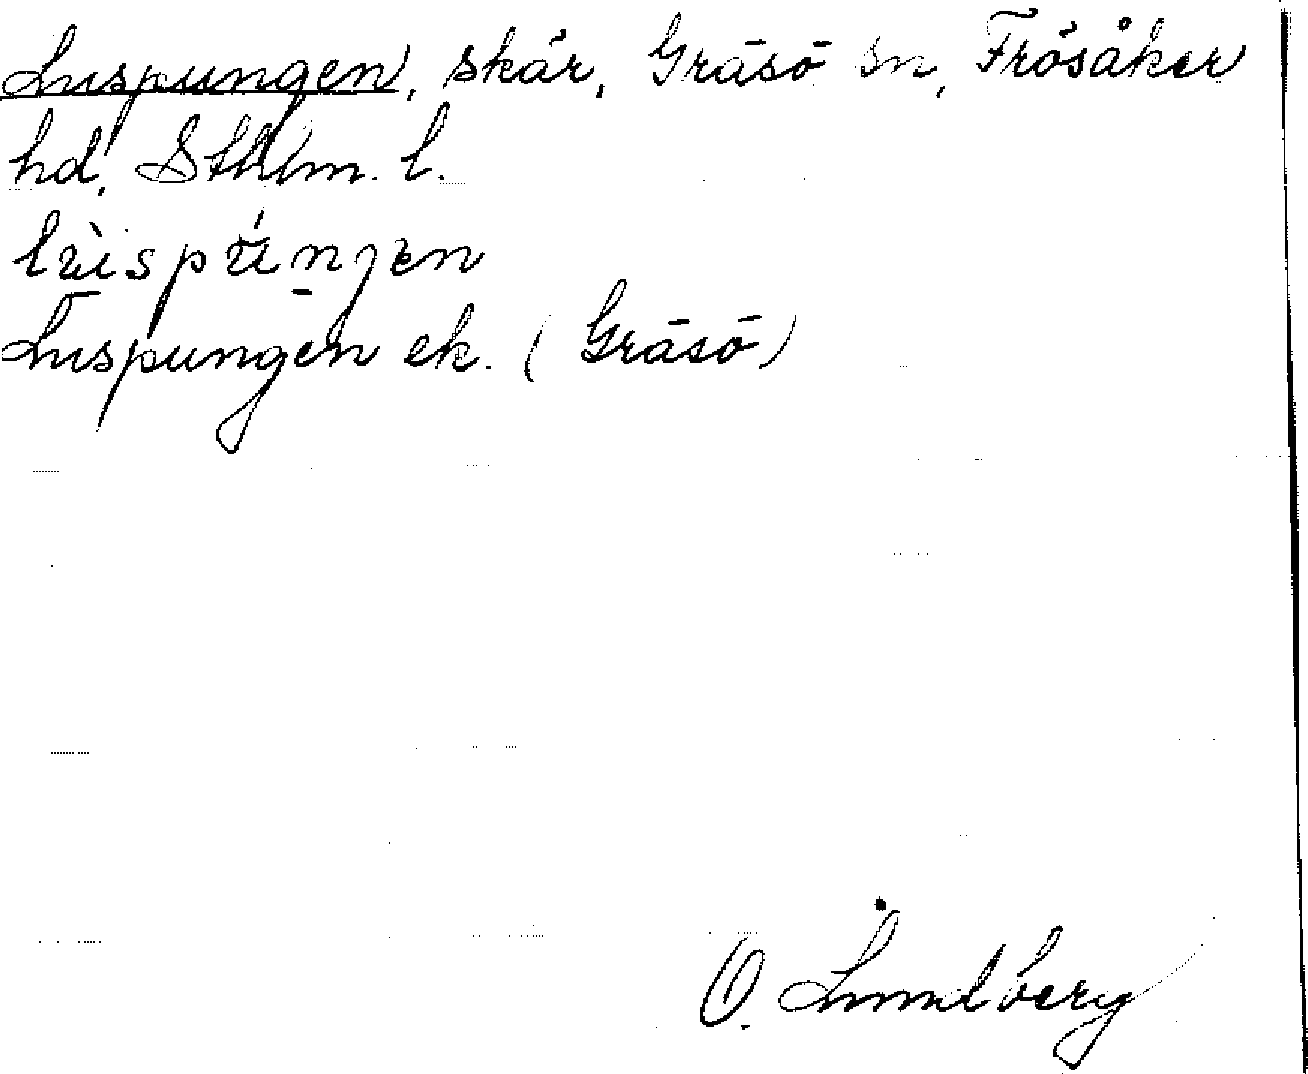 Luspungen, skär, Gräsö sn, Frösåker
hd, Sthlm. l.
Luspungen ek. (Gräsö)
O. Lundberg